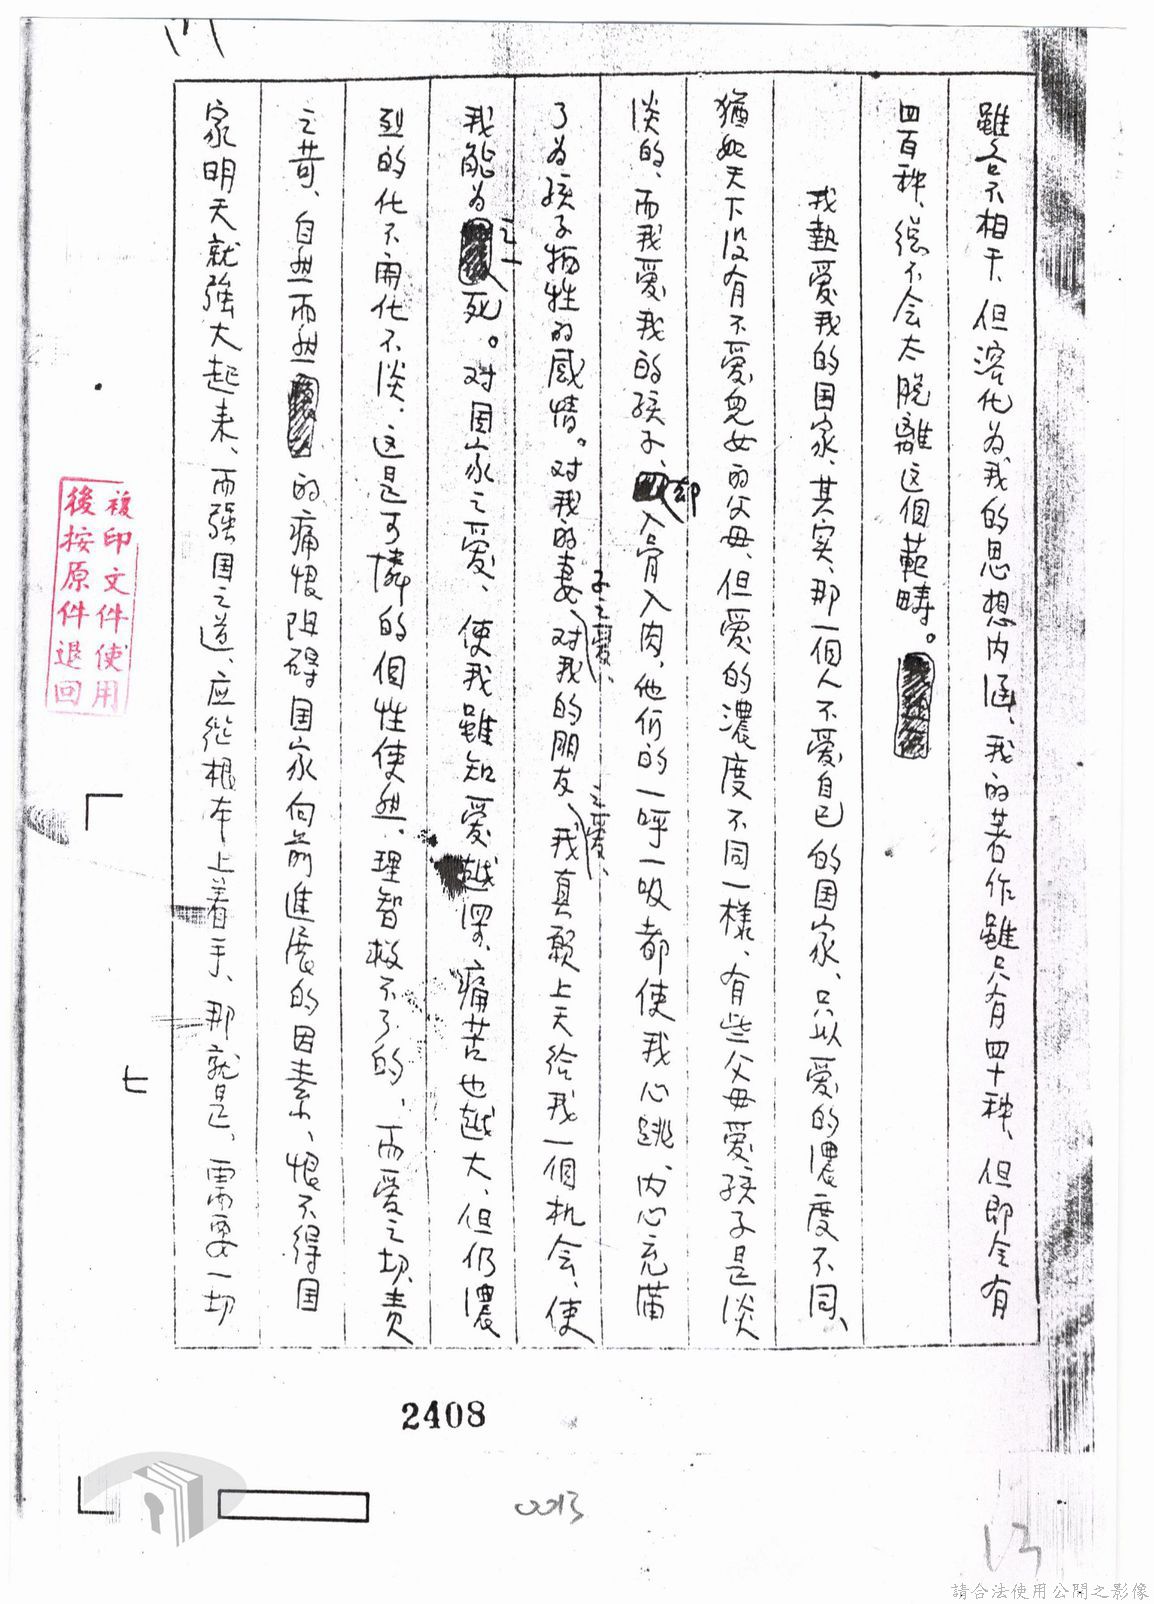 雖各不相干、但溶化为我的思想内涵、我的著作雖只有四十种、但即令有
四百种、總不会太脫離这個範疇。
我熱爱我的国家、其实、那一個人不爱自己的国家、只以爱的濃度不同、
猶如天下没有不爱兒女的父母、但爱的濃度不同一樣、有些父母爱孩子是淡
淡的、而我爱我的孩子、却入骨入肉、他们的一呼一吸都使我心跳、内心充滿
了为孩子犧牲的感情。对我的妻子之爱、对我的朋友之爱、我真願上天给我一個机会、使
我能为之一死。对国家之爱、使我雖知爱越深、痛苦也越大、但仍濃
烈的化不開化不淡、这是可憐的個性使然、理智救不了的、而爱之切、责
之苛、自然而然的痛恨阻碍国家向前進展的因素、恨不得国
家明天就強大起来、而强国之道、应從根本上着手、那就是、需要一切
七
複印文件使用
後按原件退回
2408
0013
13
請合法使用公開之影像